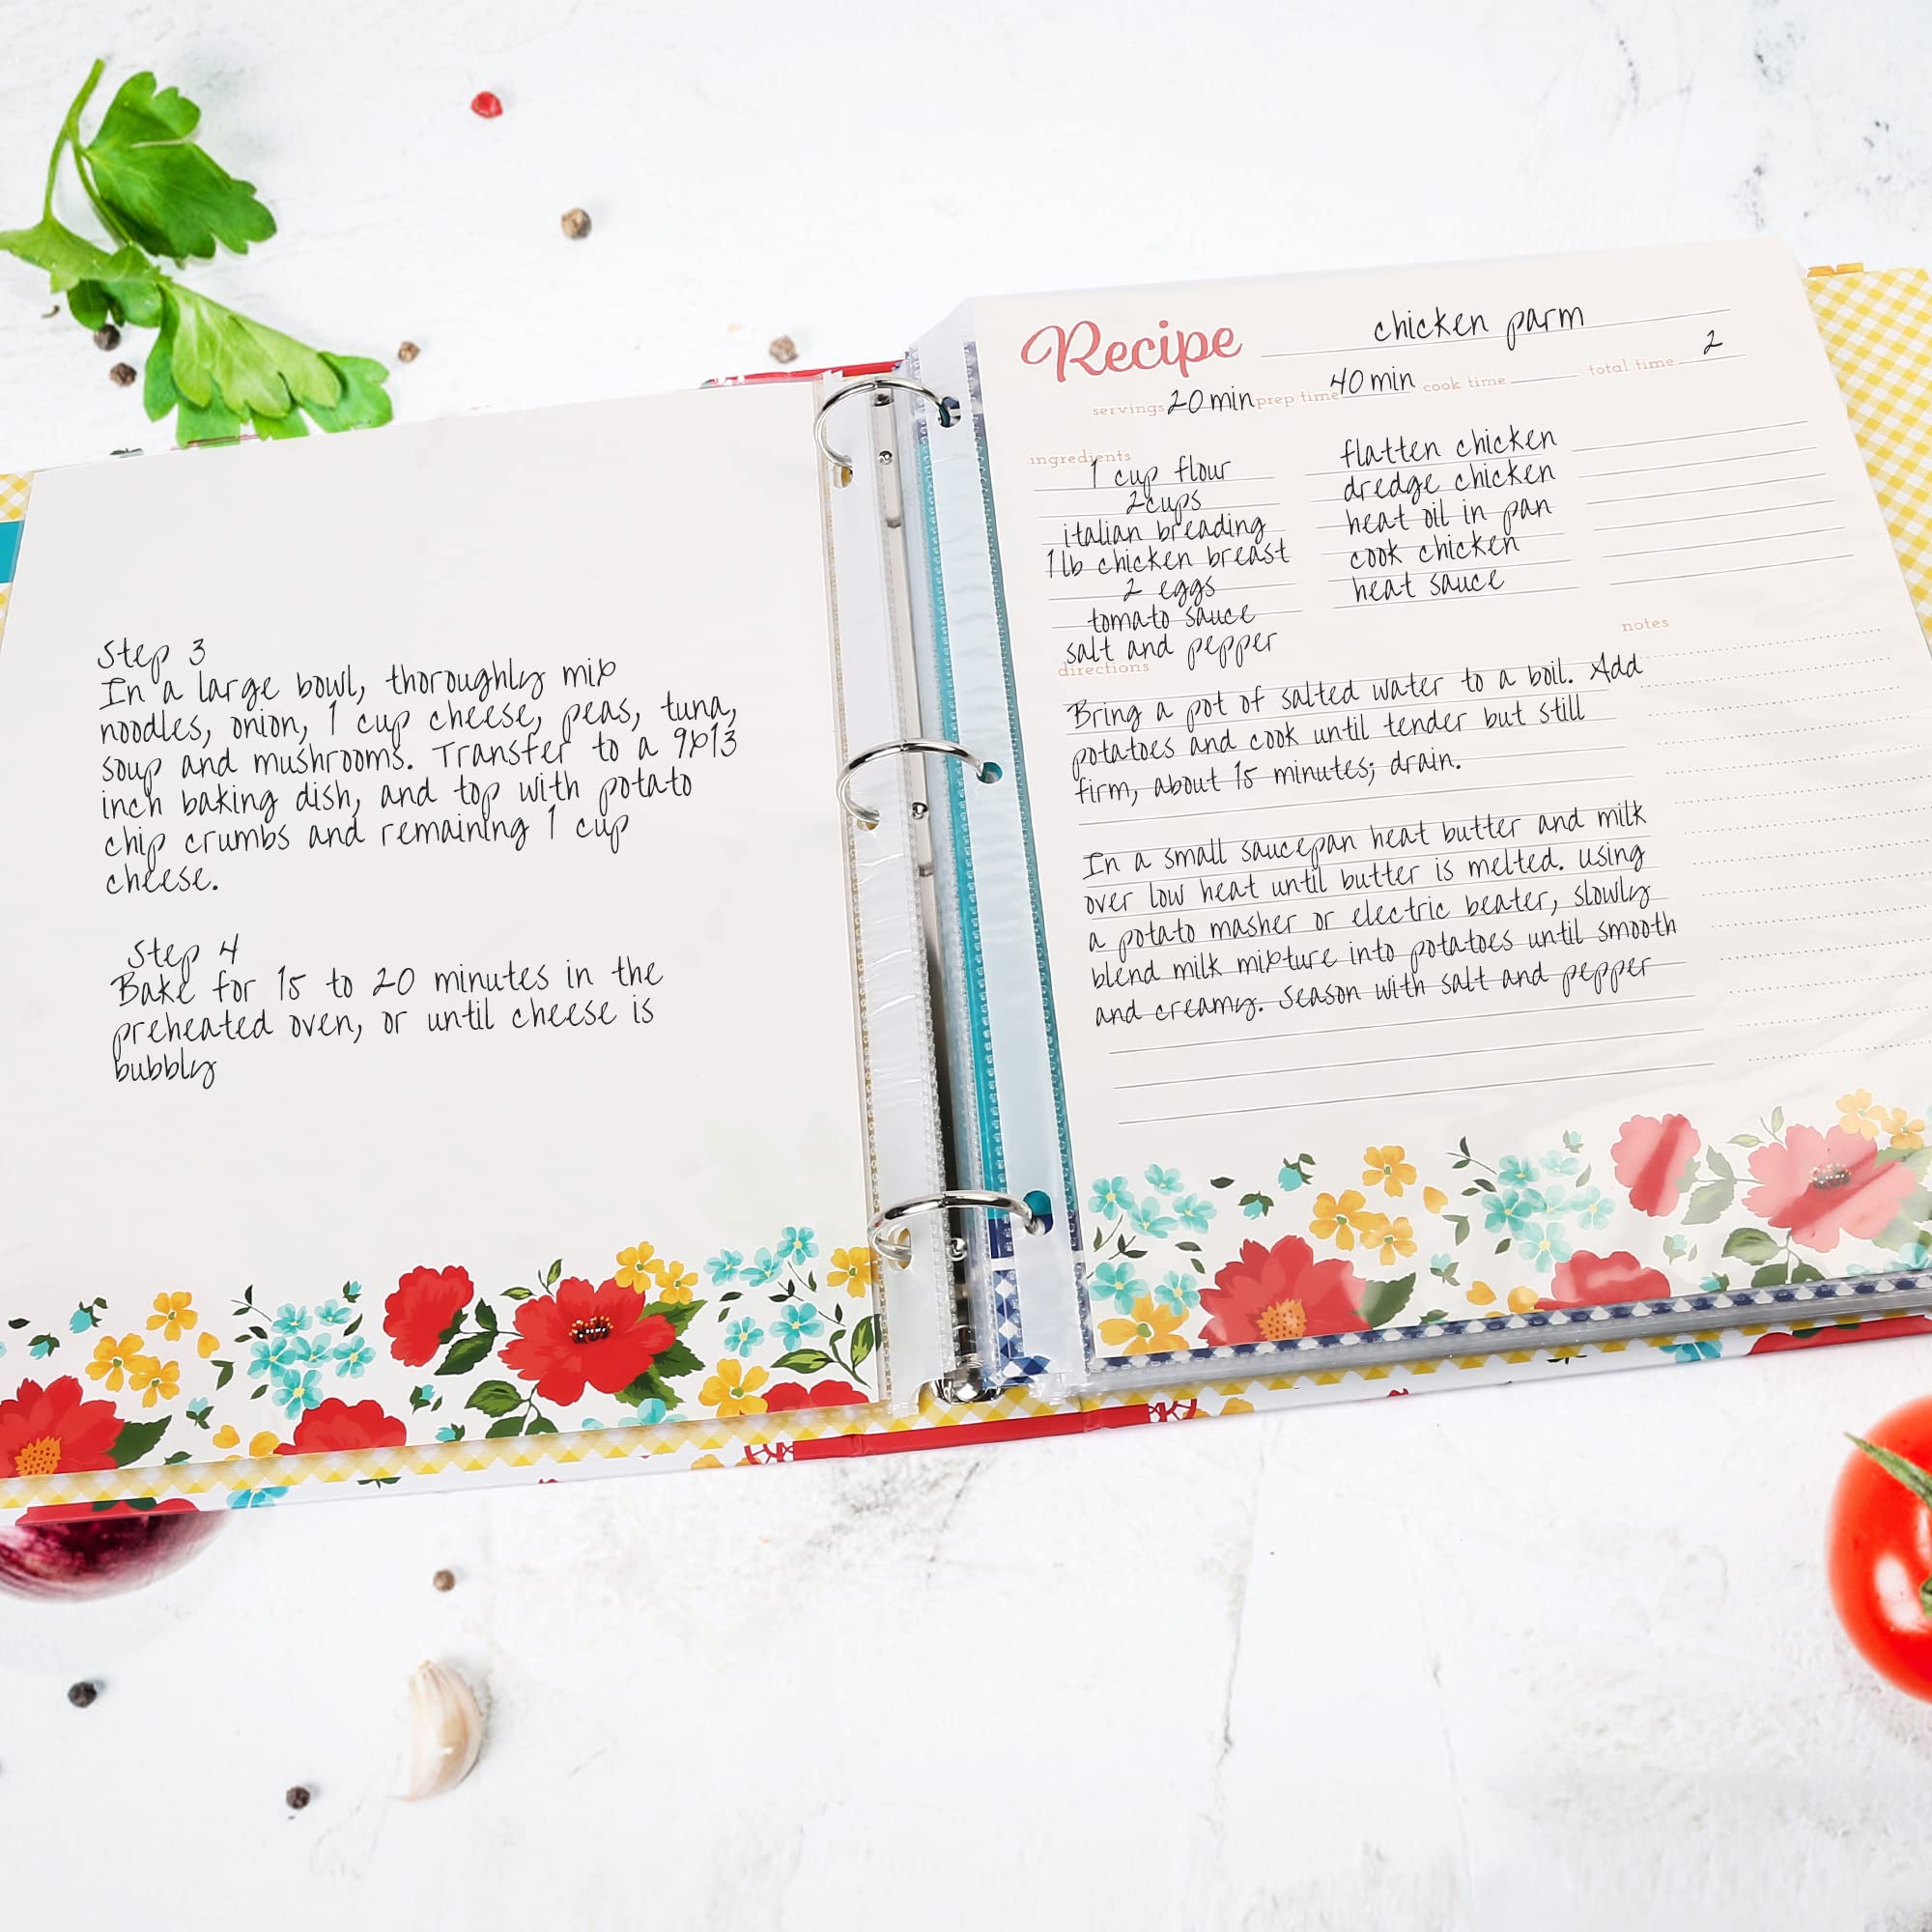 Step 3
In a large bowl, thoroughly mix
noodles, onion, 1 cup cheese, peas, tuna,
soup and mushrooms. Transfer to a 9x13
inch baking dish, and top with potato
chip crumbs and remaining 1 cup
cheese.
Step 4
Bake for 15 to 20 minutes in the
preheated oven, or until cheese is
bubbly
Recipe chicken parm
servings 20 min prep time 40 min cook time total time 2
ingredients
1 cup flour
2 cups
italian breading
1 lb chicken breast
2 eggs
tomato sauce
salt and pepper
flatten chicken
dredge chicken
heat oil in pan
cook chicken
heat sauce
notes
directions
Bring a pot of salted water to a boil. Add
potatoes and cook until tender but still
firm, about 15 minutes; drain.
In a small saucepan heat butter and milk
over low heat until butter is melted. using
a potato masher or electric beater, slowly
blend milk mixture into potatoes until smooth
and creamy. Season with salt and pepper